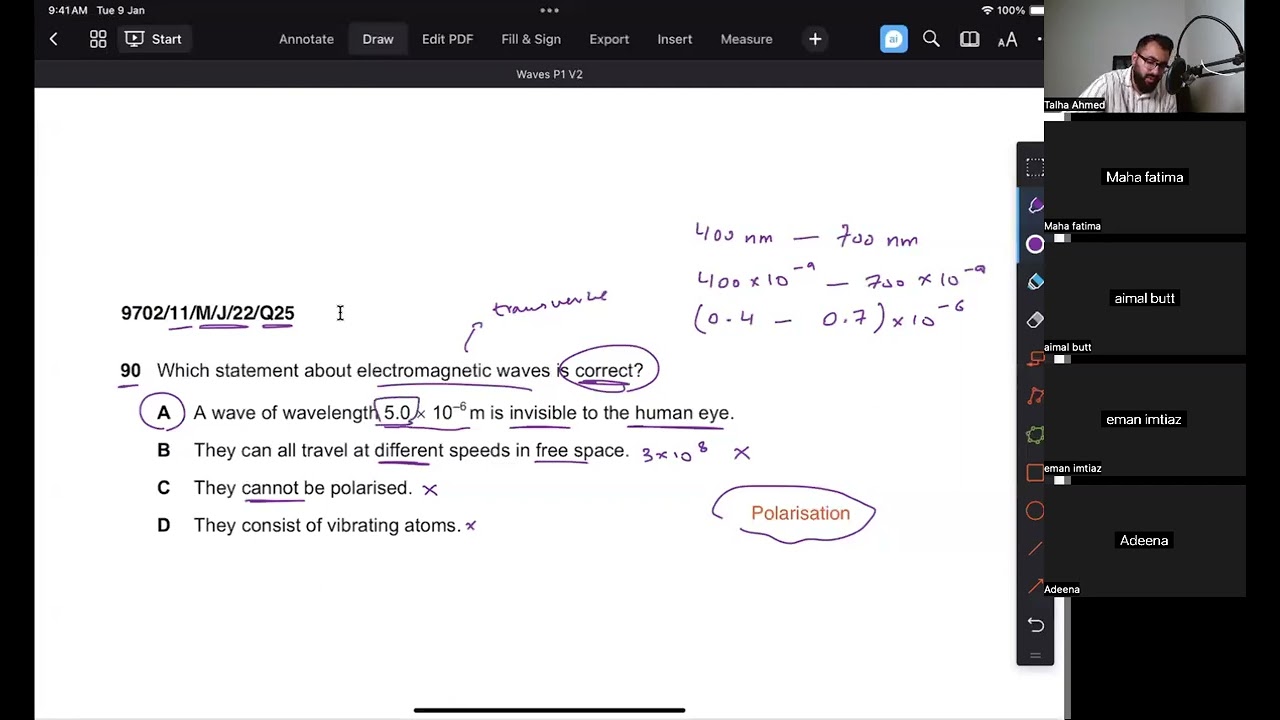 9:41AM Tue 9 Jan
100%
Start
Annotate Draw Edit PDF Fill & Sign Export Insert Measure
ai
AA
Waves P1 V2
Talha Ahmed
Maha fatima
Maha fatima
aimal butt
aimal butt
eman imtiaz
eman imtiaz
Adeena
Adeena
400 nm — 700 nm
400 × 10⁻⁹ — 700 × 10⁻⁹
(0.4 — 0.7) × 10⁻⁶
transverse
9702/11/M/J/22/Q25
90 Which statement about electromagnetic waves is correct?
A A wave of wavelength 5.0 × 10⁻⁶ m is invisible to the human eye.
B They can all travel at different speeds in free space. 3×10⁸ ×
C They cannot be polarised. ×
D They consist of vibrating atoms. ×
Polarisation